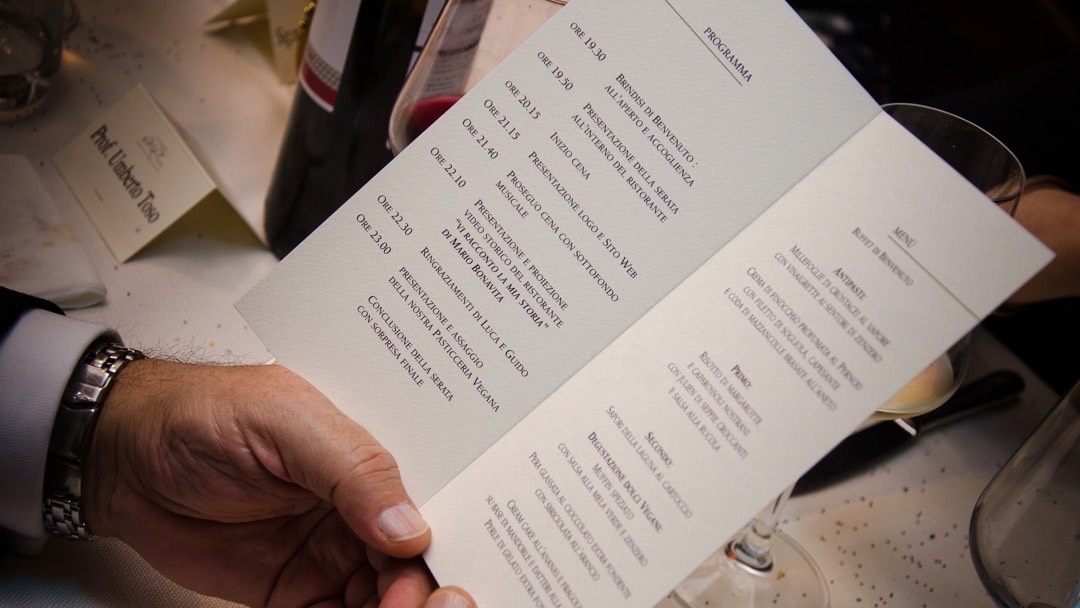 Prof. Umberto Toso
PROGRAMMA
ORE 19.30 BRINDISI DI BENVENUTO :
ALL'APERTO E ACCOGLIENZA
ORE 19.50 PRESENTAZIONE DELLA SERATA
ALL'INTERNO DEL RISTORANTE
ORE 20.15 INIZIO CENA
ORE 21.15 PRESENTAZIONE LOGO E SITO WEB
ORE 21.40 PROSEGUO CENA CON SOTTOFONDO
MUSICALE
ORE 22.10 PRESENTAZIONE E PROIEZIONE
VIDEO STORICO DEL RISTORANTE
"VI RACCONTO LA MIA STORIA"
DI MARIO BONAVITA
ORE 22.30 RINGRAZIAMENTI DI LUCA E GUIDO
ORE 23.00 PRESENTAZIONE E ASSAGGIO
DELLA NOSTRA PASTICCERIA VEGANA
CONCLUSIONE DELLA SERATA
CON SORPRESA FINALE
MENÙ
BUFFET DI BENVENUTO
ANTIPASTE:
MILLEFOGLIE DI CROSTACEI AL VAPORE
CON VINAIGRETTE AI SENTORI DI ZENZERO
CREMA DI FINOCCHIO PROFUMATA AL PERNOD
CON FILETTO DI SOGLIOLA, CAPESANTE
E CODA DI MAZZANCOLLE BRASATE ALL'ANETO
PRIMO:
RISOTTO DI MARGAROTTE
E CAPAROSSOLI NOSTRANI
CON JULIEN DI SEPPIE CROCCANTI
E SALSA ALLA RUCOLA
SECONDO:
SAPORI DELLA LAGUNA AL CARTOCCIO
DEGUSTAZIONE DOLCI VEGANI:
MUFFIN SPEZIATO
CON SALSA ALLA MELA VERDE E ZENZERO
PERA GLASSATA AL CIOCCOLATO EXTRA FONDENTE
CON SBRICIOLATA ALL'ARANCIO
CREAM CAKE ALL'ANANAS E FRAGOLA
SU BASE DI MANDORLE E DATTERI ALLA
PERLE DI GELATO EXTRA